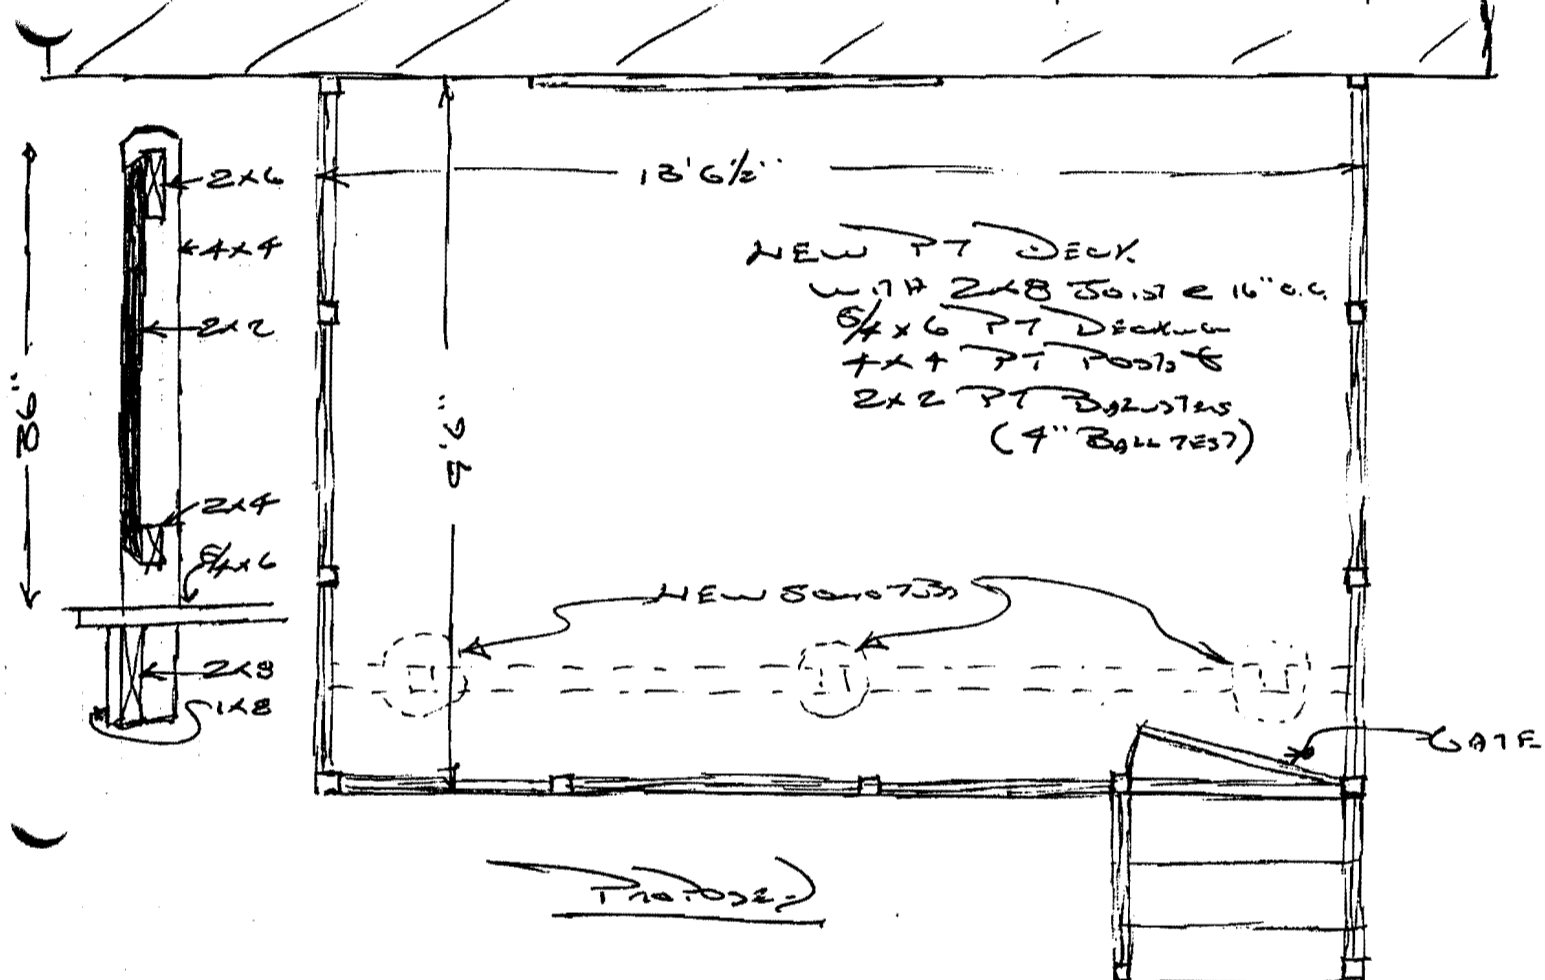 2x6
4x4
2x2
36"
2x4
5/4x6
2x8
1x8
13'6½"
NEW PT DECK
WITH 2x8 JOIST @ 16" O.C.
5/4x6 PT DECKING
4x4 PT POSTS &
2x2 PT BALUSTERS
(4" BALL TEST)
9'6"
NEW SONOTUBS
GATE
PROPOSED